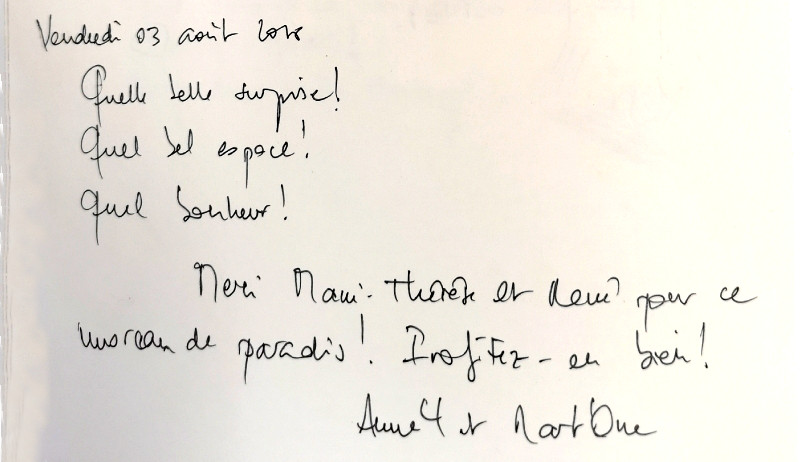 Vendredi 03 août 2018
Quelle belle surprise!
Quel bel espace!
Quel bonheur!
Merci Marie-Thérèse et René pour ce
morceau de paradis! Profitez-en bien!
et